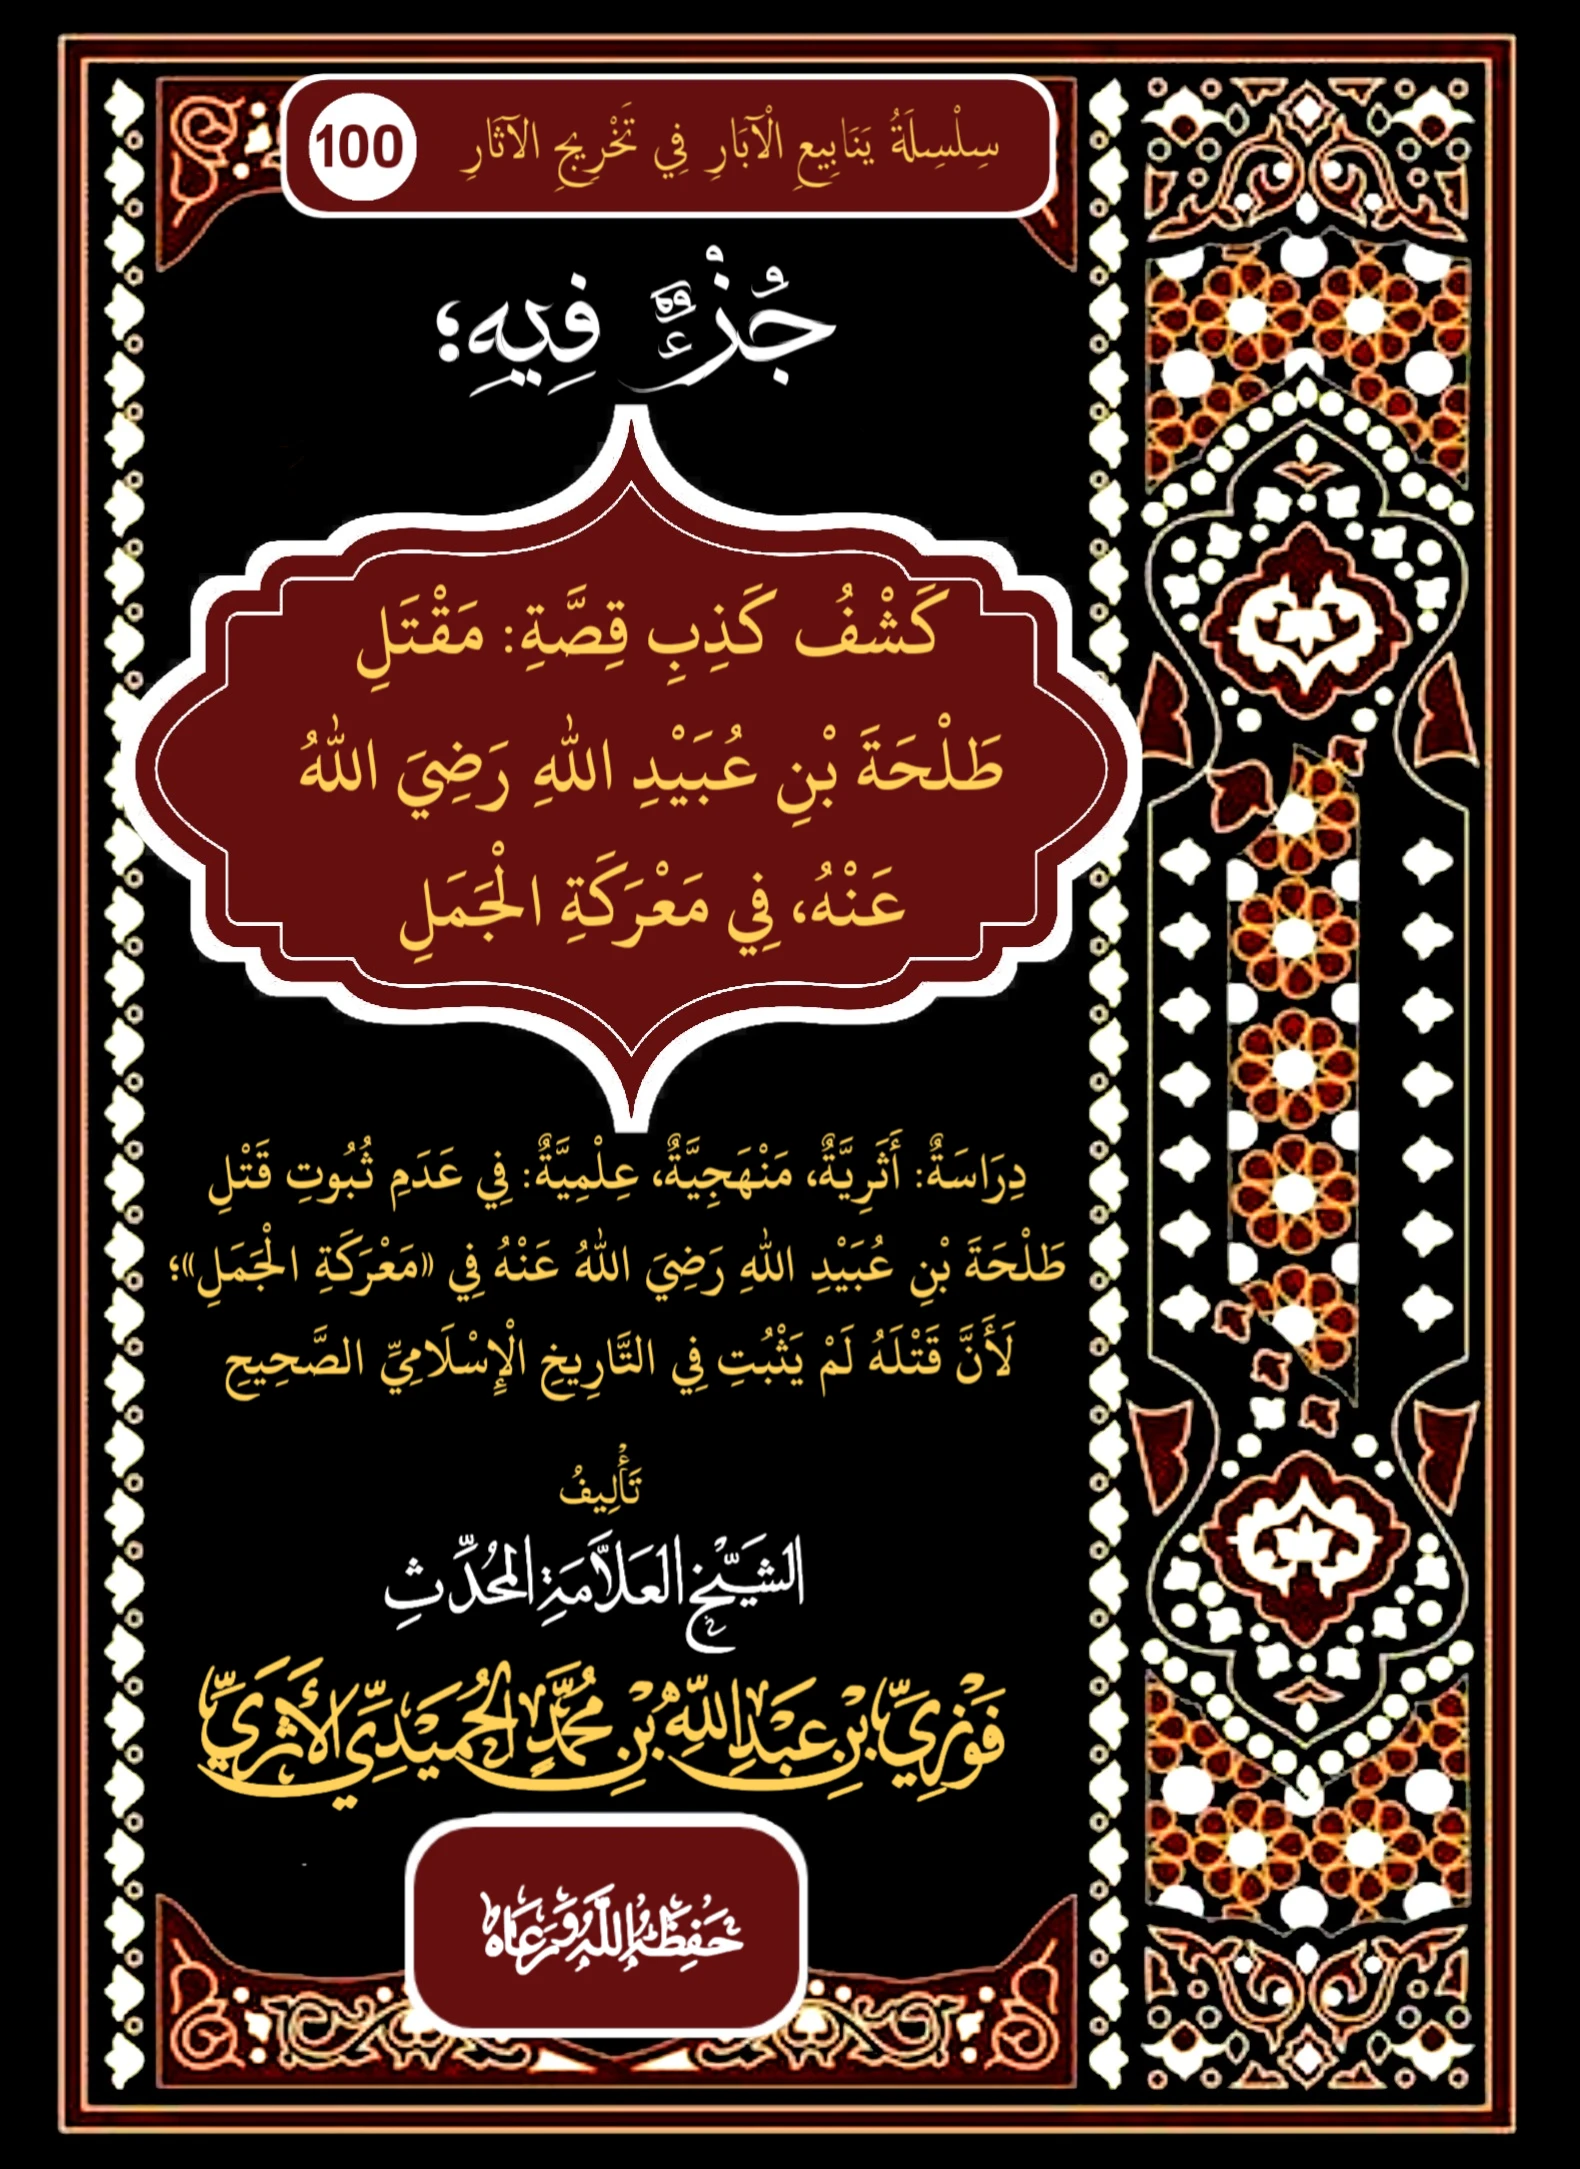 سِلْسِلَةُ يَنَابِيعِ الْآبَارِ فِي تَخْرِيجِ الآثَارِ 100
جُزْءٌ فِيهِ؛
كَشْفُ كَذِبِ قِصَّةِ: مَقْتَلِ
طَلْحَةَ بْنِ عُبَيْدِ اللهِ رَضِيَ اللهُ
عَنْهُ، فِي مَعْرَكَةِ الْجَمَلِ
دِرَاسَةٌ: أَثَرِيَّةٌ، مَنْهَجِيَّةٌ، عِلْمِيَّةٌ: فِي عَدَمِ ثُبُوتِ قَتْلِ
طَلْحَةَ بْنِ عُبَيْدِ اللهِ رَضِيَ اللهُ عَنْهُ فِي «مَعْرَكَةِ الْجَمَلِ»؛
لَأَنَّ قَتْلَهُ لَمْ يَثْبُتِ فِي التَّارِيخِ الْإِسْلَامِيِّ الصَّحِيحِ
تَأْلِيفُ
الشَيْخِ العَلَّامَةِ المُحَدِّثِ
فَوْزِيِّ بْنِ عَبْدِ اللَّهِ بْنِ مُحَمَّدٍ الحُمَيْدِيِّ الأَثَرِيِّ
حَفِظَهُ اللَّهُ وَرَعَاهُ